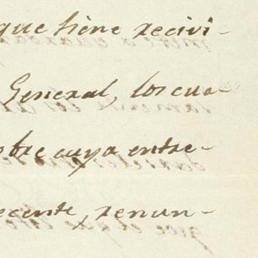 que tiene recivi-
General, los cua-
obre cuya entre-
ecente, renun-